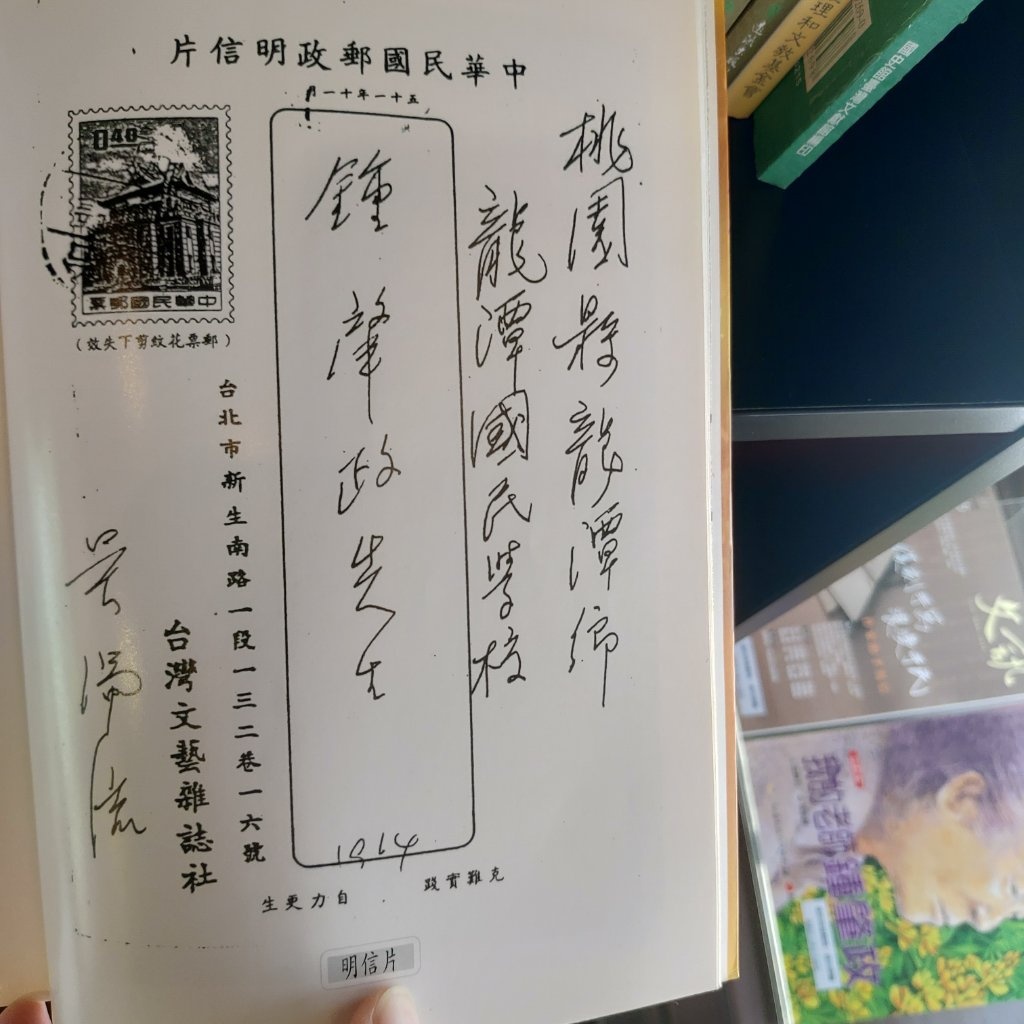 中華民國郵政明信片
五十一年十一月
桃園縣龍潭鄉
龍潭國民學校
鍾肇政先生
0.40
中華民國郵票
(郵票花紋剪下失效)
台北市新生南路一段一三二巷一六號
台灣文藝雜誌社
吳濁流
克難實踐
自力更生
明信片
理和文教基金會
鍾肇政